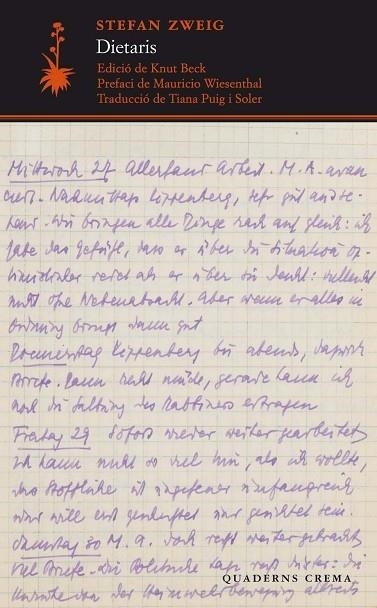 STEFAN ZWEIG
Dietaris
Edició de Knut Beck
Prefaci de Mauricio Wiesenthal
Traducció de Tiana Puig i Soler
Mittwoch 27 Allerhand Arbeit. M. A. avan
ciert. Nachmittags Kippenberg, sehr gut und
Wir bringen alle Dinge rasch auf gleich: ich
habe das Gefühl, dass er über die Situation op-
timistischer redet als er über sie denkt: vielleicht
nicht ohne Nebenabsicht. Aber wenn er alles in
Ordnung bringt dann gut
Donnerstag Kippenberg bis abends, dazwisch
Briefe. Dann recht müde, gerade kann ich
noch die des Rabbiners ertragen
Freitag 29 Sofort wieder weiter gearbeitet
Ich kann nicht so viel tun, als ich wollte,
das Stoffliche ist ungeheuer umfangreich
und will erst und gesichtet sein.
Samstag 30 M. A. doch recht weiter gebracht
Viel Briefe. Die Politische Lage recht düster: die
der Heimwehrbewegung
QUADERNS CREMA